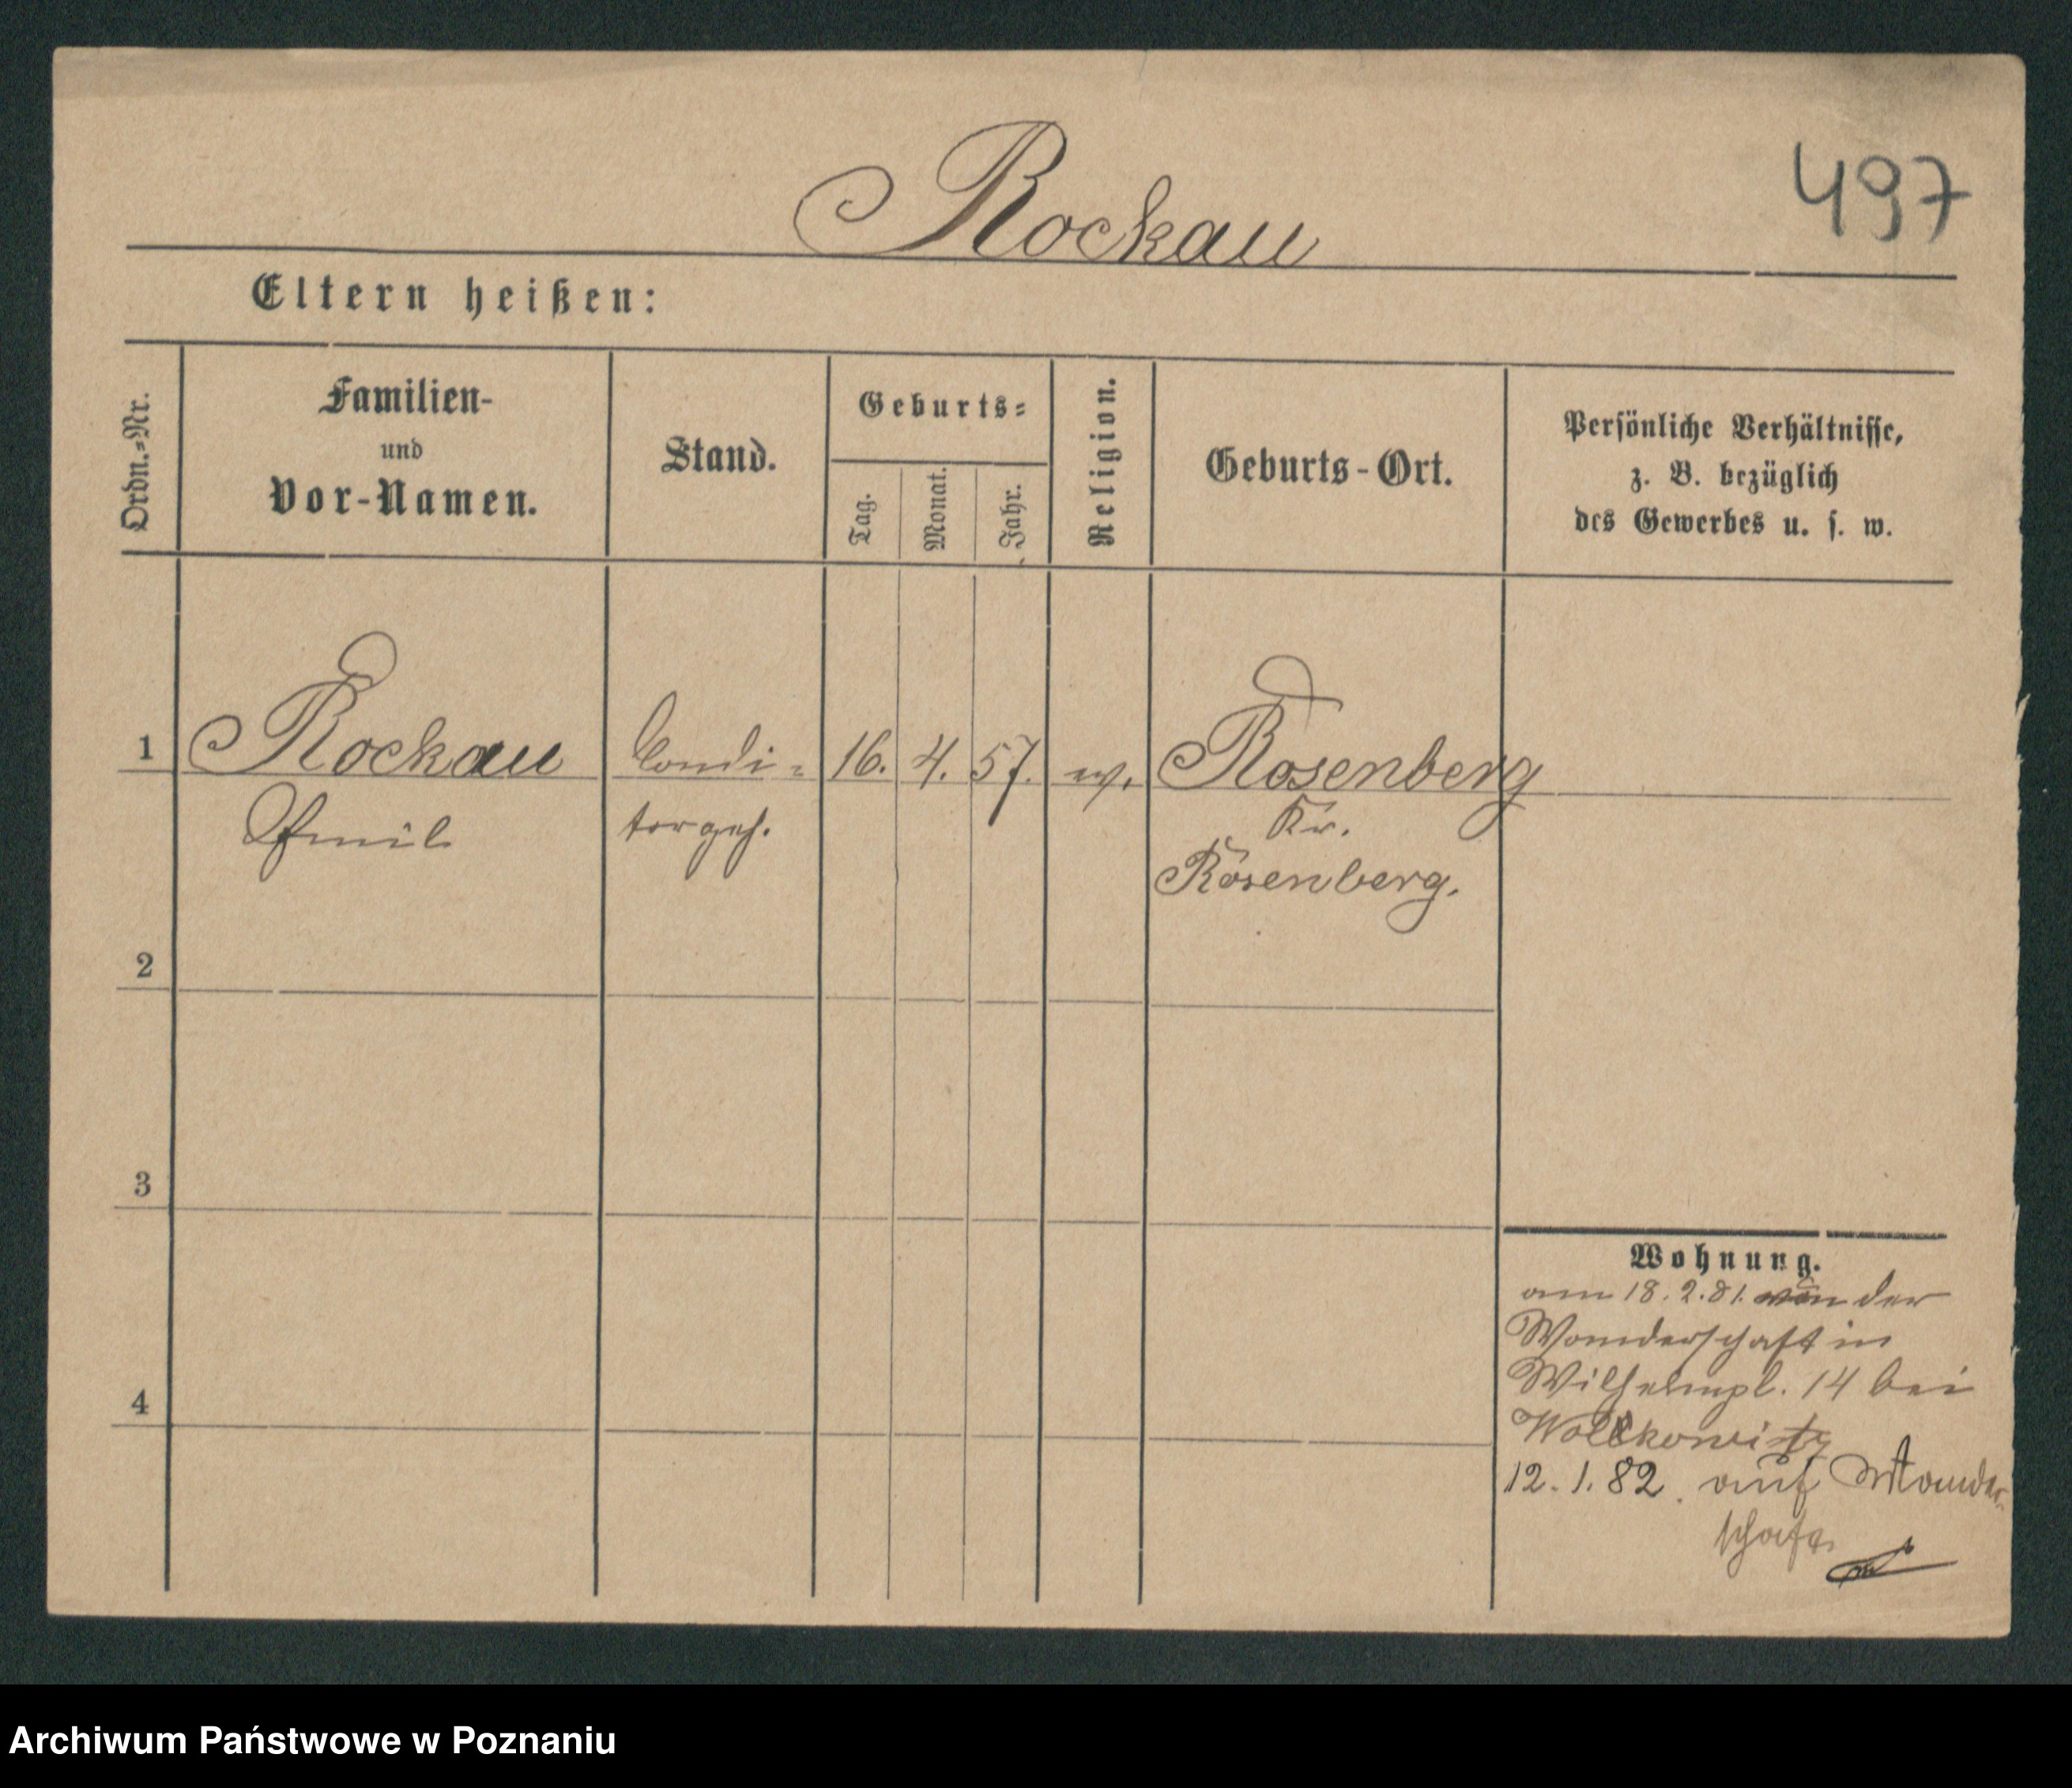 Rockau
497
Eltern heißen:
Ordn.=Nr.
Familien-
und
Vor-Namen.
Stand.
Geburts=
Tag.
Monat.
Jahr.
Religion.
Geburts-Ort.
Persönliche Verhältnisse,
z. B. bezüglich
des Gewerbes u. s. w.
1 Rockau Condi= 16. 4. 57. Rosenberg
Emil torgeh. Kr.
Rosenberg.
2
3
4
Wohnung.
am 18.2.81. von der
Wanderschaft in
Wilhelmpl. 14 bei
Wolkowitz
12.1.82. auf Wander
schaft.
Archiwum Państwowe w Poznaniu